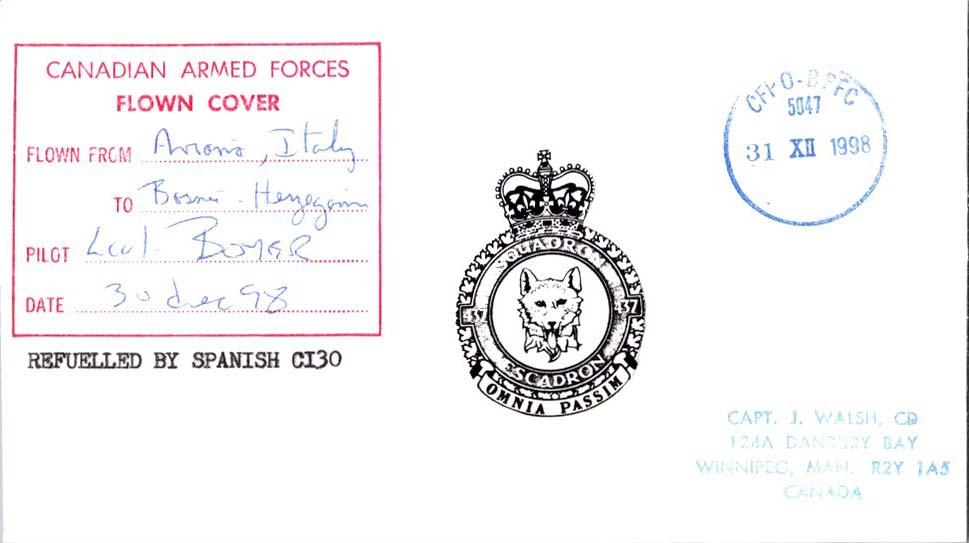 CANADIAN ARMED FORCES
FLOWN COVER
FLOWN FROM Aviano, Italy
TO Bosnia-Herzegovina
PILOT Lcol. BOYER
DATE 30 dec 98
REFUELLED BY SPANISH C130
SQUADRON
437 437
ESCADRON
OMNIA PASSIM
CFPO-BPFC
5047
31 XII 1998
CAPT. J. WALSH, CD
124A DANBURY BAY
WINNIPEG, MAN. R2Y 1A5
CANADA